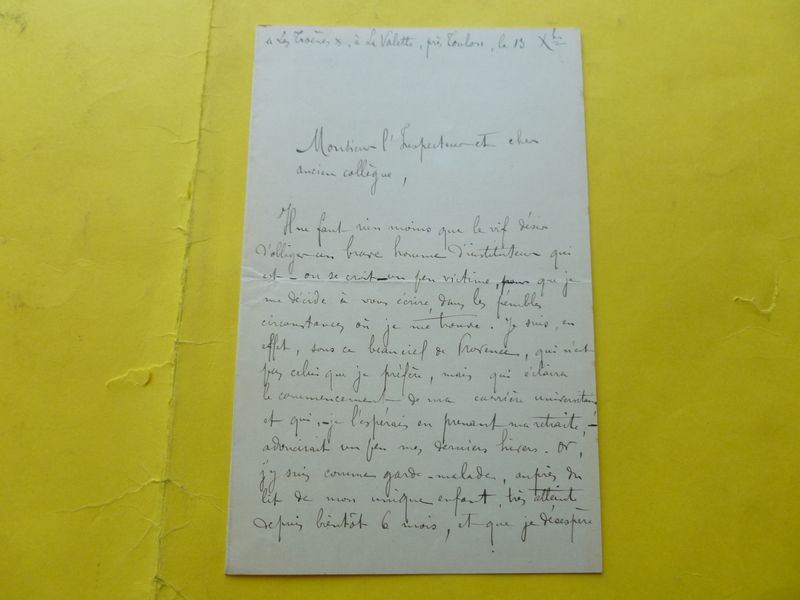 « Les Troènes », à La Valette, près Toulon, le 13 Xbre
Monsieur l'Inspecteur et cher
ancien collègue,
Il ne faut rien moins que le vif désir
d'obliger un brave homme d'instituteur qui
est – ou se croit – un peu victime, pour que je
me décide à vous écrire, dans les pénibles
circonstances où je me trouve. Je suis, en
effet, sous ce beau ciel de Provence, qui n'est
pas celui que je préfère, mais qui éclaira
le commencement de ma carrière universitaire,
et qui, – je l'espérais en prenant ma retraite, –
adoucirait un peu mes derniers hivers. Or,
j'y suis comme garde-malade, auprès du
lit de mon unique enfant, très atteinte
depuis bientôt 6 mois, et que je désespère